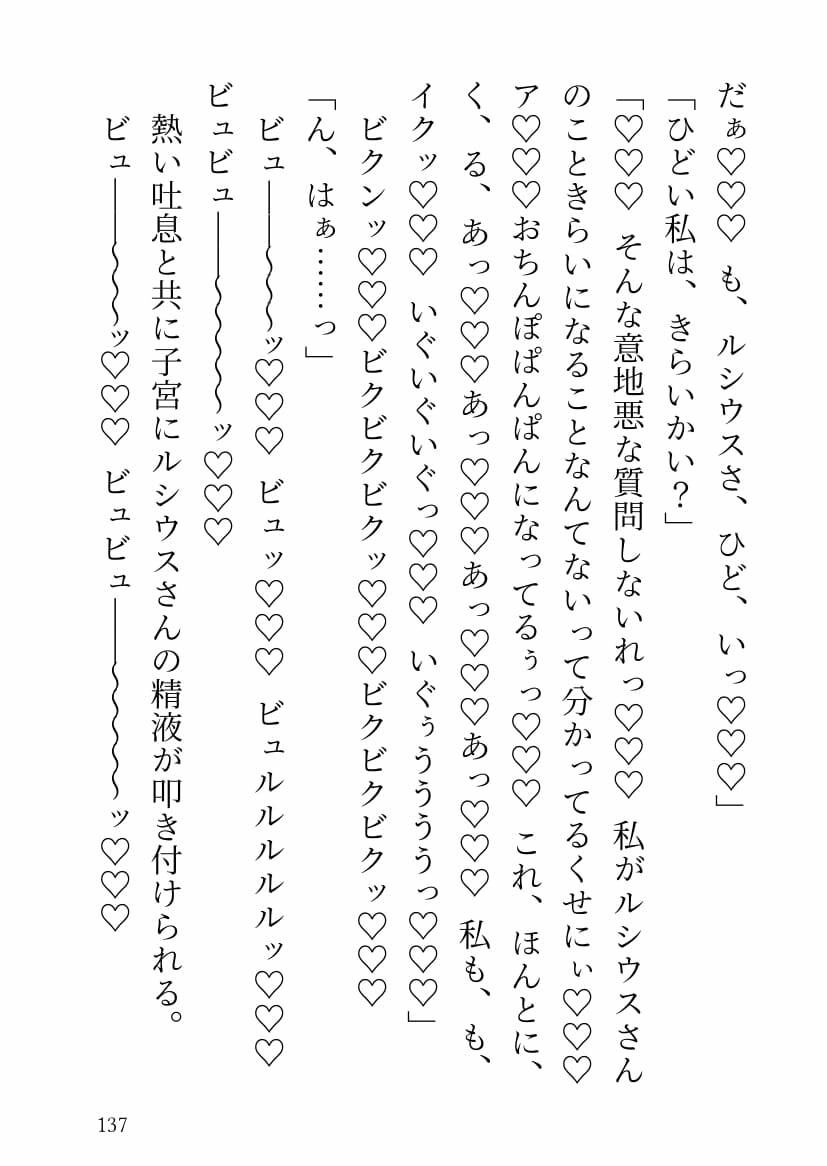 だぁ♡♡♡　も、ルシウスさ、ひど、いっ♡♡♡」
「ひどい私は、きらいかい？」
「♡♡♡　そんな意地悪な質問しないれっ♡♡♡　私がルシウスさん
のこときらいになることなんてないって分かってるくせにぃ♡♡♡
ア♡♡♡おちんぽぱんぱんになってるぅっ♡♡♡　これ、ほんとに、
く、る、あっ♡♡♡あっ♡♡♡あっ♡♡♡あっ♡♡♡　私も、も、
イクッ♡♡♡　いぐいぐいぐっ♡♡♡　いぐぅうううっ♡♡♡」
　ビクンッ♡♡♡ビクビクビクッ♡♡♡ビクビクビクッ♡♡♡
「ん、はぁ……っ」
　ビュ――～～～ッ♡♡♡　ビュッ♡♡♡　ビュルルルルルッ♡♡♡
ビュビュ――～～～～ッ♡♡♡
　熱い吐息と共に子宮にルシウスさんの精液が叩き付けられる。
　ビュ――～～～ッ♡♡♡　ビュビュ――～～～～ッ♡♡♡
137